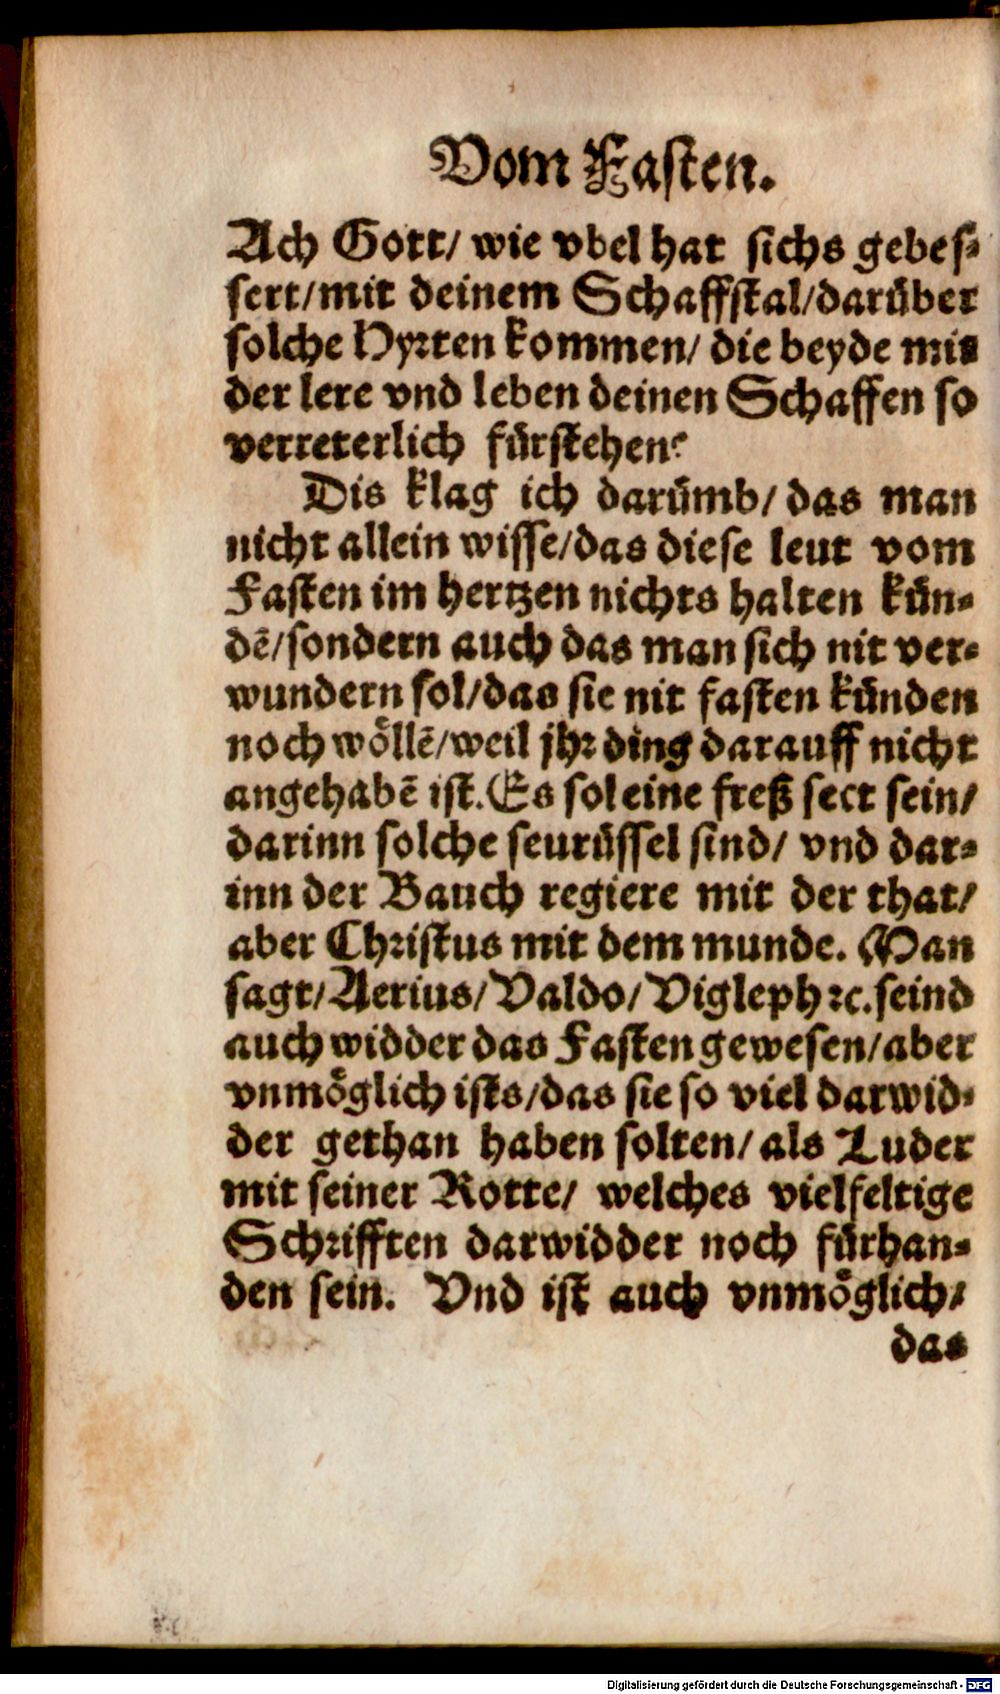 Vom Fasten.
Ach Gott/ wie vbel hat sichs gebes⸗
sert/mit deinem Schaffstal/darüber
solche Hyrten kommen/ die beyde mit
der lere vnd leben deinen Schaffen so
verreterlich fürstehen?
Dis klag ich darümb/ das man
nicht allein wisse/das diese leut vom
Fasten im hertzen nichts halten kün⸗
dē/sondern auch das man sich nit ver⸗
wundern sol/das sie nit fasten künden
noch wöllē/weil jhr ding darauff nicht
angehabē ist. Es sol eine freß sect sein/
darinn solche seurüssel sind/ vnd dar⸗
inn der Bauch regiere mit der that/
aber Christus mit dem munde. Man
sagt/Aerius/Valdo/Vigleph ꝛc. seind
auch widder das Fasten gewesen/aber
vnmöglich ists/das sie so viel darwid⸗
der gethan haben solten/ als Luder
mit seiner Rotte/ welches vielfeltige
Schrifften darwidder noch fürhan⸗
den sein. Vnd ist auch vnmöglich/
das
Digitalisierung gefördert durch die Deutsche Forschungsgemeinschaft - DFG